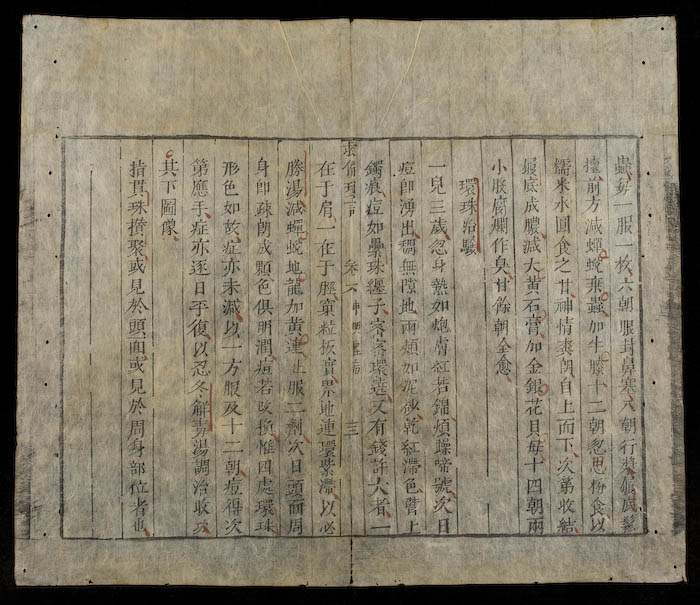 蟲每一服一枚六朝眼封鼻塞八朝行漿
擅前方減蟬蛻棗蟲加牛膝十二朝忽思粉食以
糯米水圓食之甘神情爽朗自上而下次第收結
靨底成膿減大黃石膏加金銀花貝母十四朝兩
小腿腐爛作臭廿餘朝全愈
環珠治驗
一兒三歲忽身熱如炮膚紅若錦煩躁啼號次日
痘即湧出稠無隙地兩頰如泥砂乾紅滯色臀上
鐲痕痘如纍珠纏子密密環遶又有錢許大者一
在于肩一在于脛實粒板實界地連環紫滯以必
勝湯減蟬蛻地龍加黃連止服二劑次日頭面周
身即疎朗成顆色俱明潤痘若改換惟四處環珠
形色如故症亦未減以一方服及十二朝痘得次
第應手症亦逐日平復以忍冬解毒湯調治收功
其下圖像
指貫珠攢聚或見於頭面或見於周身部位者也
卷六